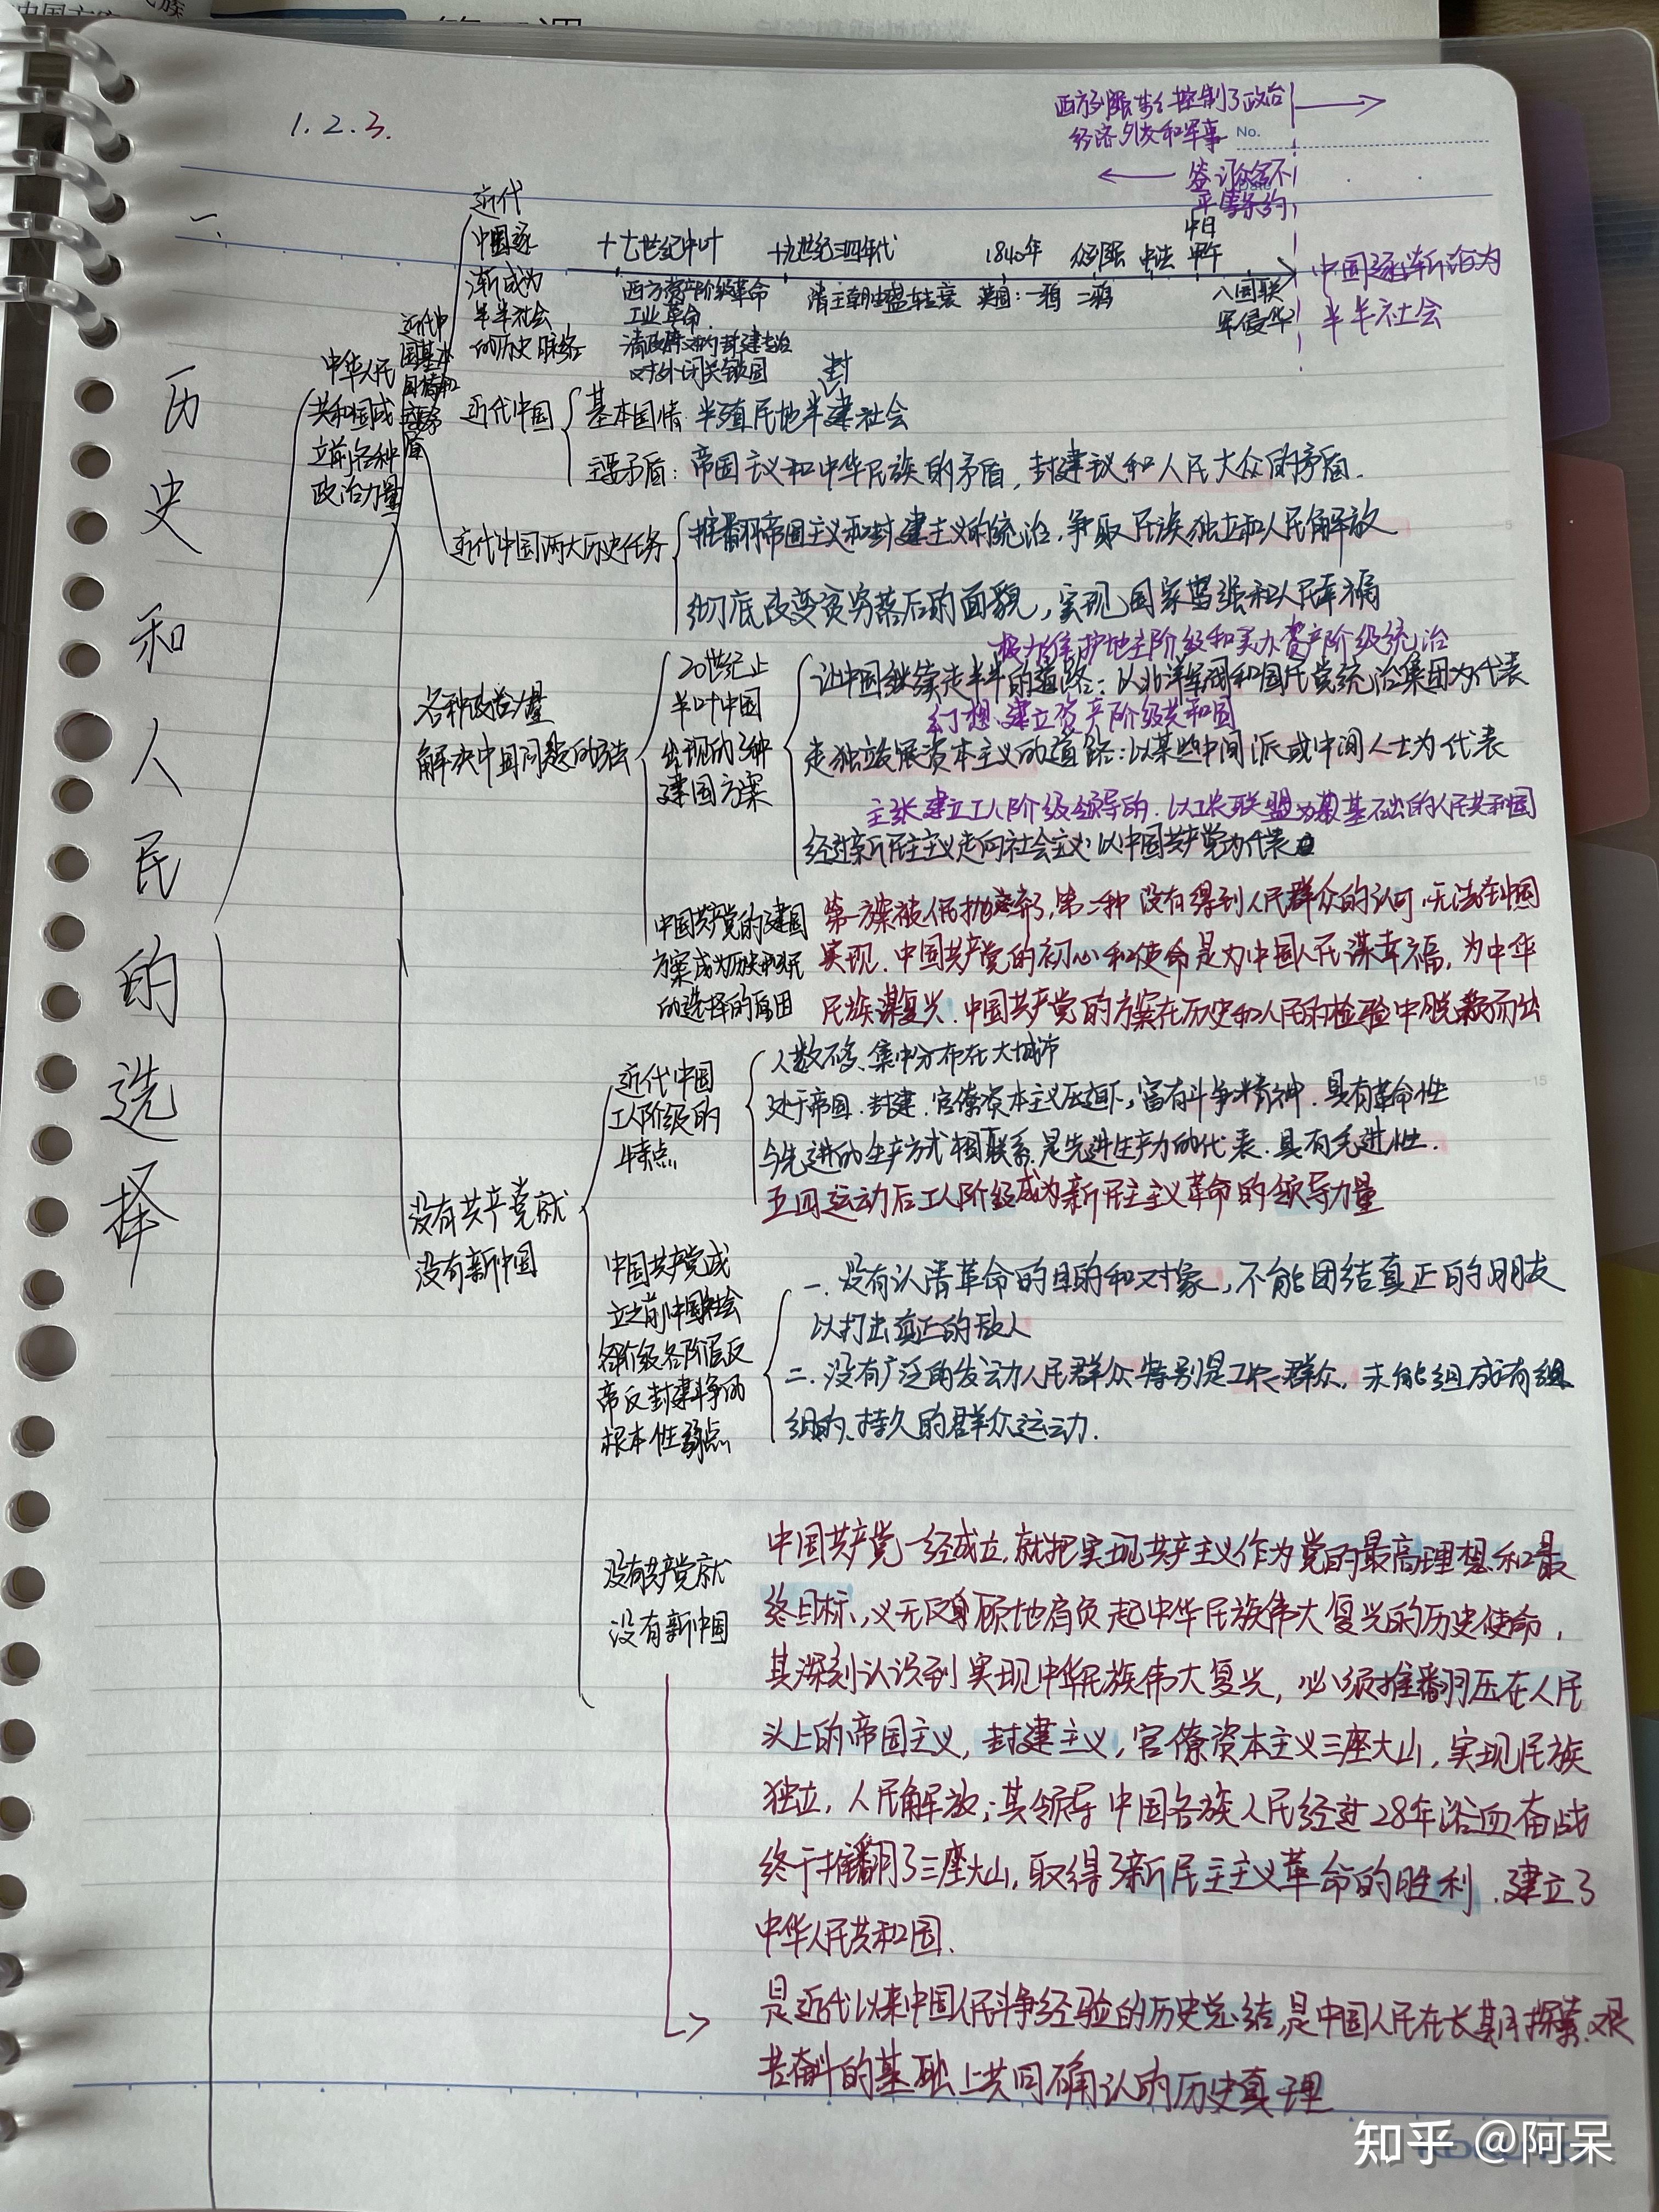 1.2.3.
西方列强势力控制了政治
经济外交和军事
No.
签订众多不
平等条约
历史和人民的选择
一、
中华人民
共和国成
立前各种
政治力量
近代中
国基本
国情和
主要矛
盾
近代
中国逐
渐成为
半半社会
的历史脉络
十七世纪中叶
西方资产阶级革命
工业革命
清政府对内封建专治
对外闭关锁国
十九世纪三四年代
清王朝由盛转衰
1840年
英国：一鸦 二鸦
众列强
中法
中日
甲午
八国联
军侵华
中国逐渐沦为
半半社会
近代中国
基本国情 半殖民地半建社会
封
主要矛盾：帝国主义和中华民族的矛盾，封建主义和人民大众的矛盾.
近代中国两大历史任务
推翻帝国主义和封建主义的统治，争取民族独立和人民解放
彻底改变贫穷落后的面貌，实现国家富强和人民幸福
各种政治力量
解决中国问题的方法
20世纪上
半叶中国
出现的3种
建国方案
极力维护地主阶级和买办资产阶级统治
让中国继续走半半的道路：以北洋军阀和国民党统治集团为代表
幻想建立资产阶级共和国
走独立发展资本主义的道路：以某些中间派或中间人士为代表
主张建立工人阶级领导的.以工农联盟为基础的人民共和国
经过新民主主义走向社会主义：以中国共产党为代表
中国共产党的建国
方案成为历史和人民
的选择的原因
第一方案被人民抛弃了,第二种 没有得到人民群众的认可,无法在中国
实现.中国共产党的初心和使命是为中国人民谋幸福，为中华
民族谋复兴.中国共产党的方案在历史和人民的检验中脱颖而出
没有共产党就
没有新中国
近代中国
工人阶级的
特点
人数不多、集中分布在大城市
处于帝国.封建.官僚资本主义压迫下，富有斗争精神.具有革命性
与先进的生产方式相联系.是先进生产力的代表.具有先进性.
五四运动后工人阶级成为新民主主义革命的领导力量
中国共产党成
立之前中国社会
各阶级各阶层反
帝反封建斗争的
根本性弱点
一.没有认清革命的目的和对象，不能团结真正的朋友
以打击真正的敌人
二.没有广泛的发动人民群众特别是工农群众，未能组成有组
组的、持久的群众运动.
没有共产党就
没有新中国
中国共产党一经成立,就把实现共产主义作为党的最高理想和最
终目标，义无反顾地肩负起中华民族伟大复兴的历史使命，
其深刻认识到 实现中华民族伟大复兴，必须推翻压在人民
头上的帝国主义，封建主义，官僚资本主义三座大山，实现民族
独立，人民解放；其领导中国各族人民经过28年浴血奋战
终于推翻了三座大山，取得了新民主主义革命的胜利.建立了
中华人民共和国.
是近代以来中国人民斗争经验的历史总结,是中国人民在长期探索.艰
苦奋斗的基础上共同确认的历史真理
知乎 @阿呆